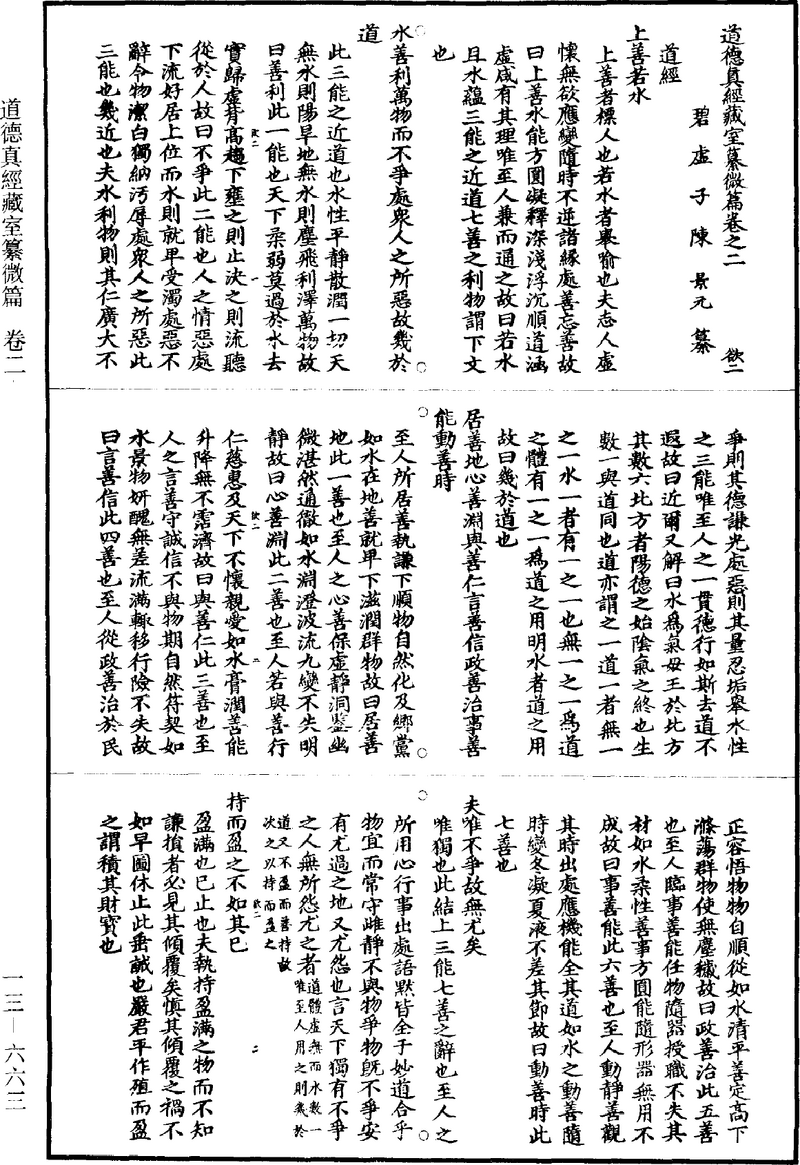 道德真經藏室纂微篇卷之二　欲二
碧虛子陳景元纂
道經
上善若水
上善者標人也若水者舉喻也夫志人虛
懷無欲應變隨時不逆諸緣處善忘善故
曰上善水能方圓凝釋深淺浮沉順道涵
虛咸有其理唯至人兼而通之故曰若水
且水蘊三能之近道七善之利物謂下文
也
水善利萬物而不爭處衆人之所惡故幾於
道
此三能之近道也水性平靜散潤一切天
無水則陽旱地無水則塵飛利澤萬物故
曰善利此一能也天下柔弱莫過於水去
實歸虛背高趨下壅之則止決之則流聽
從於人故曰不爭此二能也人之情惡處
下流好居上位而水則就卑受濁處惡不
辭令物潔白獨納污辱處衆人之所惡此
三能也幾近也夫水利物則其仁廣大不
爭則其德謙光處惡則其量忍垢舉水性
之三能唯至人之一貫德行如斯去道不
遐故曰近爾又解曰水爲氣母王於北方
其數六北方者陽德之始陰氣之終也生
數一與道同也道亦謂之一道一者無一
之一水一者有一之一也無一之一爲道
之體有一之一爲道之用明水者道之用
故曰幾於道也
居善地心善淵與善仁言善信政善治事善
能動善時
至人所居善執謙下順物自然化及鄉黨
如水在地善就卑下滋潤群物故曰居善
地此一善也至人之心善保虛靜洞鑒幽
微湛然通徹如水淵澄波流九變不失明
靜故曰心善淵此二善也至人若與善行
仁慈惠及天下不懷親愛如水膏潤善能
升降無不霑濟故曰與善仁此三善也至
人之言善守誠信不與物期自然符契如
水景物妍醜無差流滿輒移行險不失故
曰言善信此四善也至人從政善治於民
正容悟物物自順從如水清平善定高下
滌蕩群物使無塵穢故曰政善治此五善
也至人臨事善能任物隨器授職不失其
材如水柔性善事方圓能隨形器無用不
成故曰事善能此六善也至人動靜善觀
其時出處應機能全其道如水之動善隨
時變冬凝夏液不差其節故曰動善時此
七善也
夫唯不爭故無尤矣
唯獨也此結上三能七善之辭也至人之
所用心行事出處語默皆全于妙道合乎
物宜而常守雌靜不與物爭物既不爭安
有尤過之地又尤怨也言天下獨有不爭
之人無所怨尤之者道體虛無而水數一
唯至人用之則幾於
道又不盈而善持故
次之以持而盈之
持而盈之不如其已
盈滿也已止也夫執持盈滿之物而不知
謙損者必見其傾覆矣慎其傾覆之禍不
如早圖休止此垂誡也嚴君平作殖而盈
之謂積其財寶也
道德真經藏室纂微篇　卷二
一三—六六三